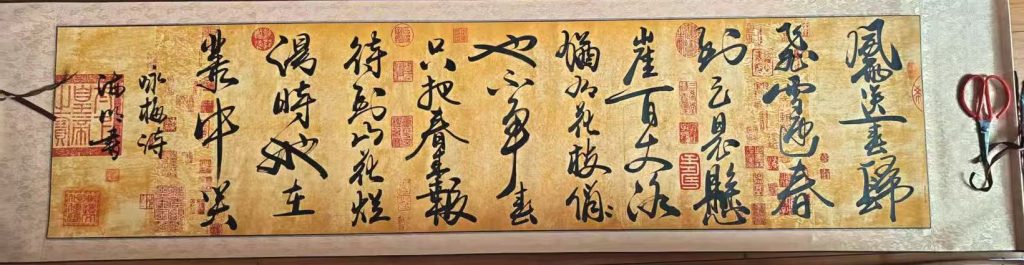 風雨送春歸
飛雪迎春
到已是懸
崖百丈冰
猶有花枝俏〻
也不爭春
只把春來報
待到山花爛
漫時她在
叢中笑
咏梅詩
書